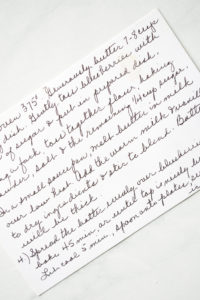 oven 375° Generously butter 7-8 cup
dish. Gently toss blueberries with
of sugar & put in prepared dish.
a fork toss together flour, baking
powder, salt & the remaining sugar.
In a small saucepan, melt butter in milk
over low heat. Add the warm milk
to dry ingredients & stir to blend.
will be thick.
4) Spread the batter evenly over
bake 45 min. or until top is nicely
Let cool 5 min, spoon onto plates,